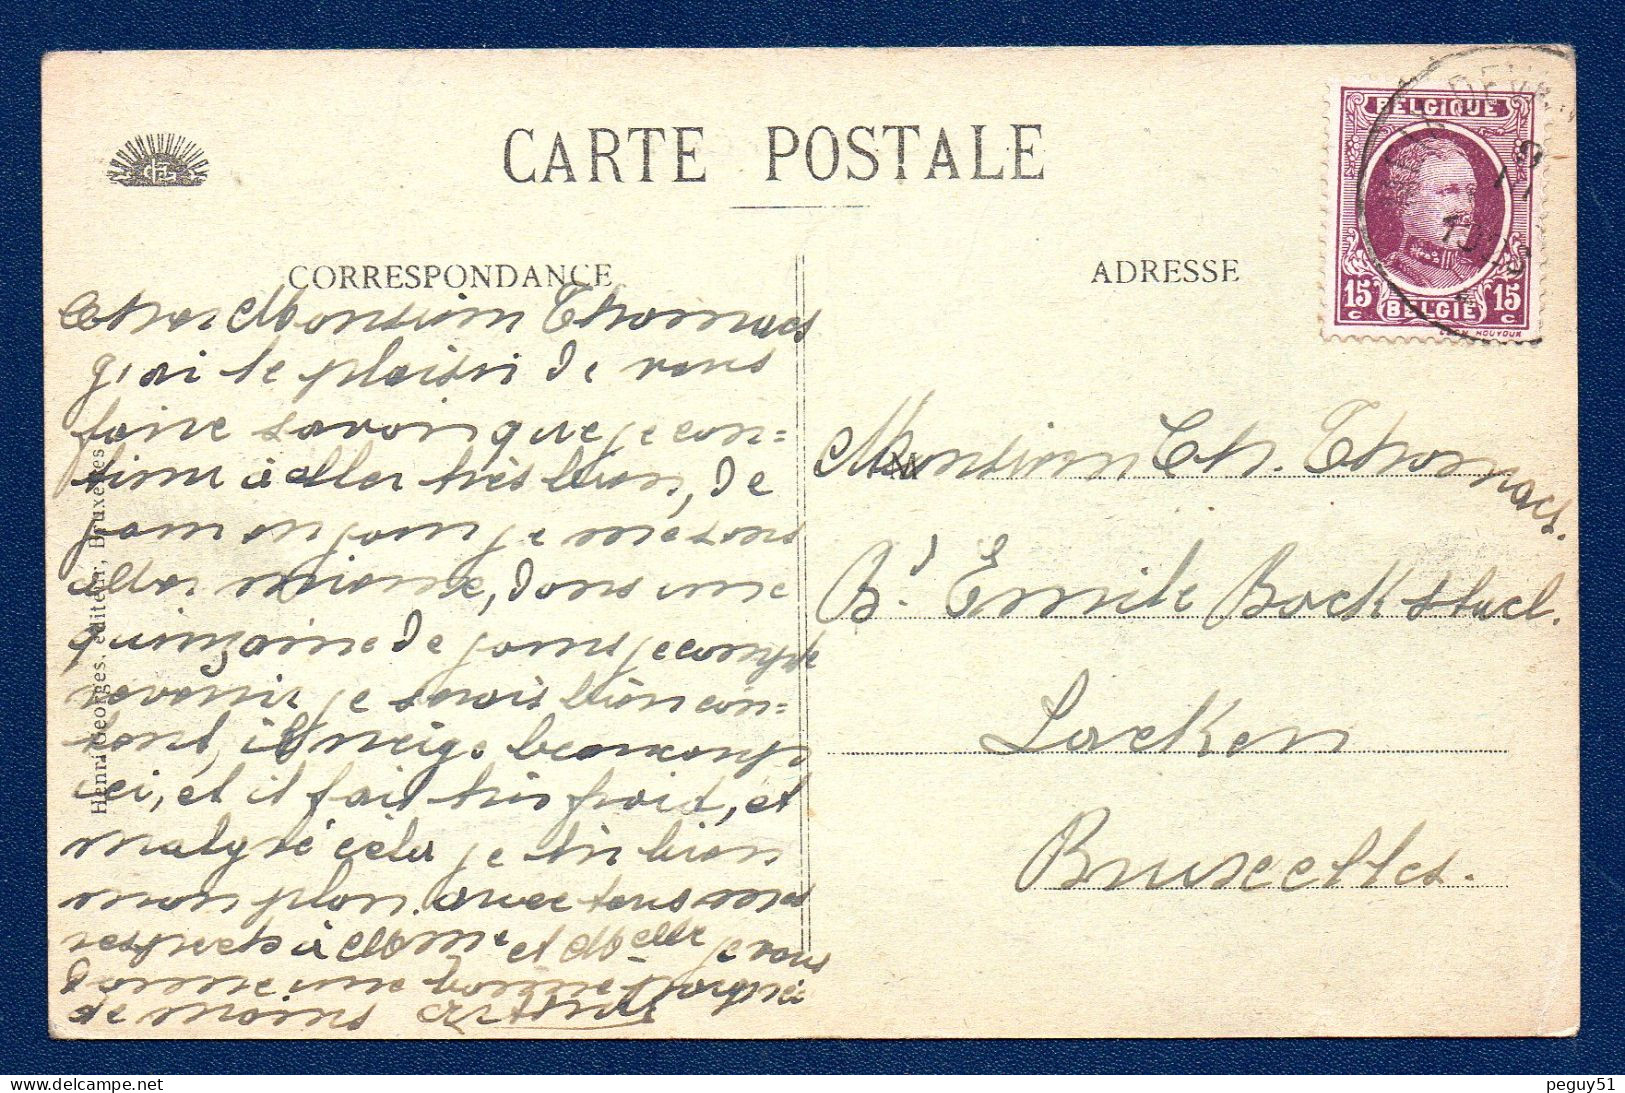 CARTE POSTALE
CORRESPONDANCE
Cher Monsieur Thomaes
j'ai le plaisir de vous
faire savoir que je con=
tinue à aller très bien, de
jour en jour je me sens
aller mieux, dans une
quinzaine de jours je compte
revenir je serais bien con=
tent, il neige beaucoup
ici, et il fait très froid, et
malgré cela je tiens bien
mon plan. avec tous mes
respects à Mme et Melle je vous
donne une bonne poignée
de mains
Henri Georges, éditeur, Bruxelles
ADRESSE
Monsieur Ch. Thomaes.
Bd. Emile Bockstael.
Laeken
Bruxelles.
BELGIQUE
15 c
BELGIË
15 c
HOUYOUX
peguy51